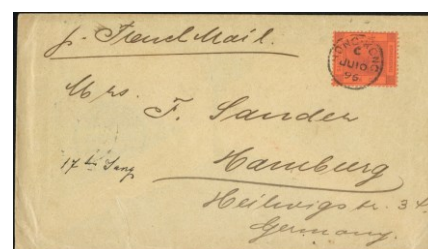 pr. French Mail.
HONG KONG
C
JU 10
96
Mrs. F. Sander
Hamburg
Heilwigstr. 3
Germany.